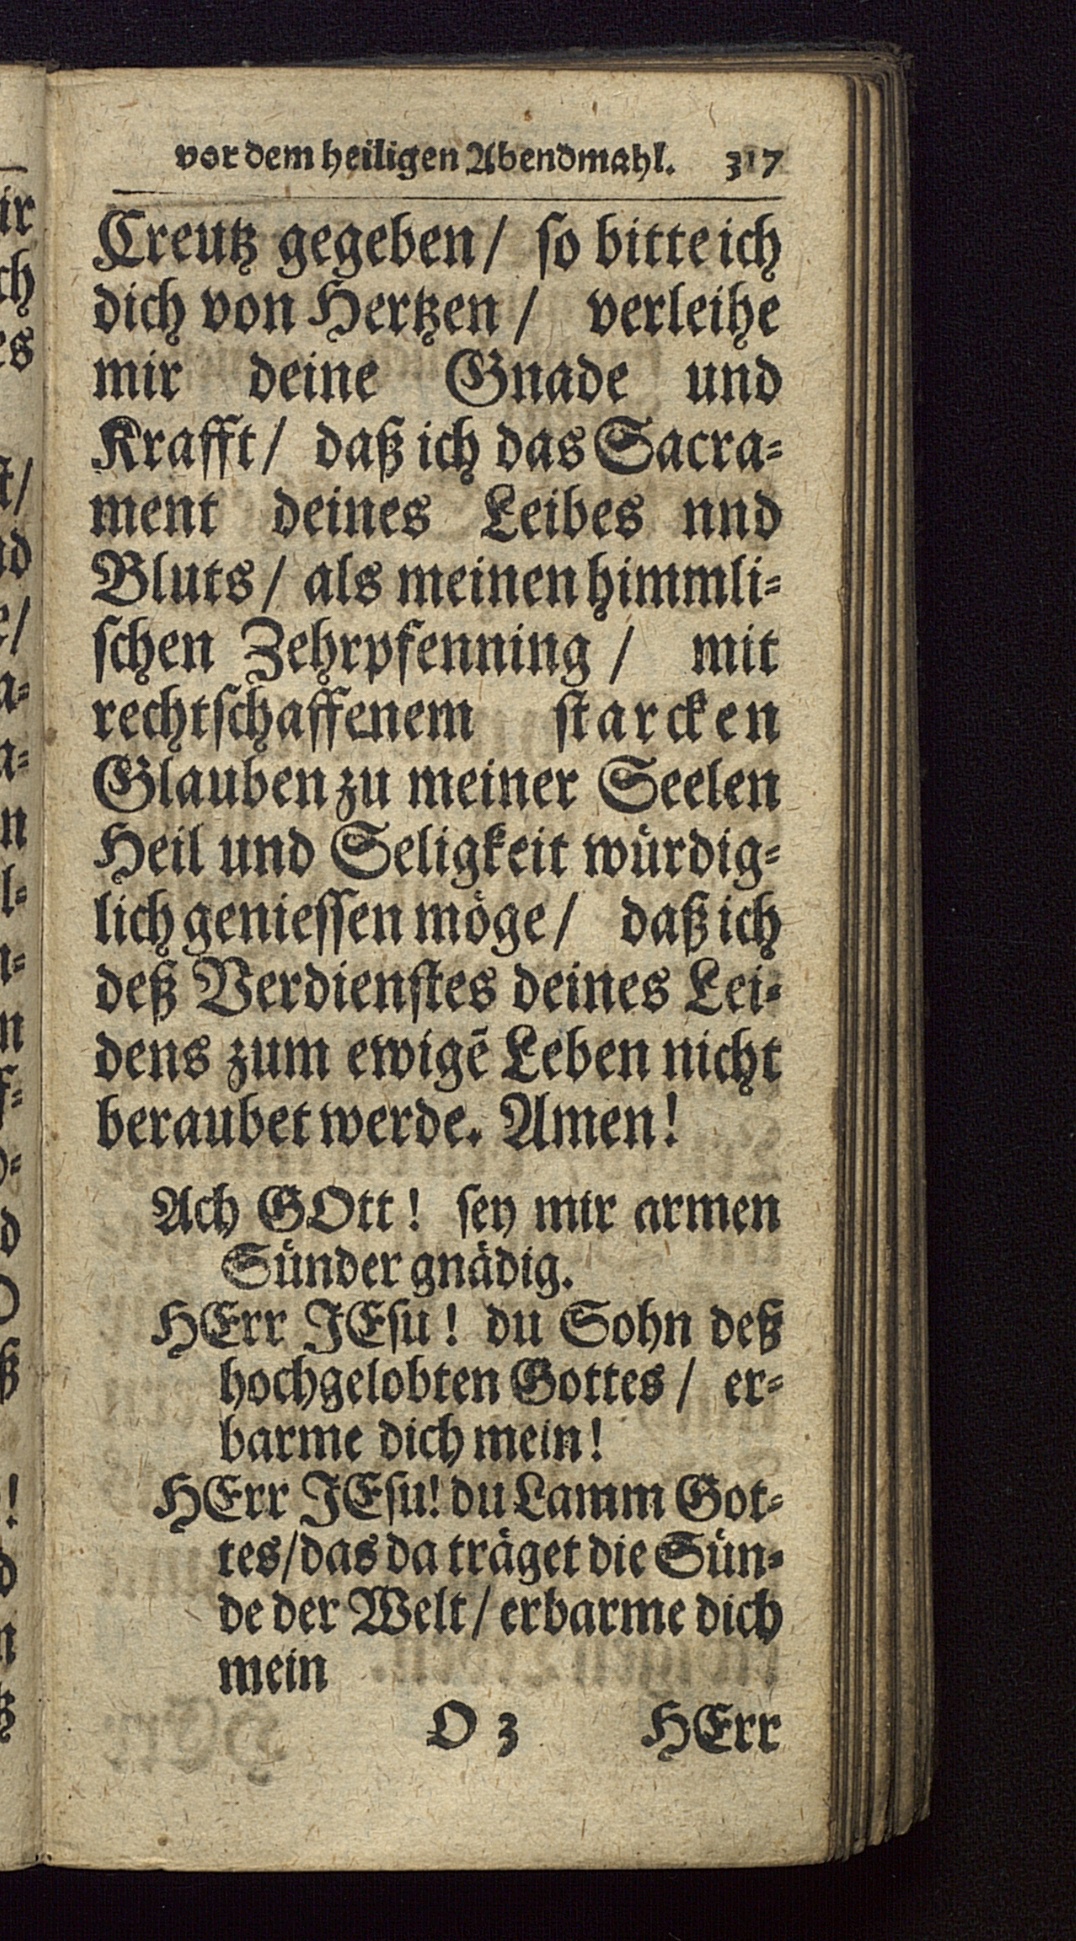 vor dem heiligen Abendmahl. 317
Creutz gegeben/ ſo bitte ich
dich von Hertzen / verleihe
mir deine Gnade und
Krafft/ daß ich das Sacra⸗
ment deines Leibes nnd
Bluts/ als meinen himmli⸗
ſchen Zehrpfenning / mit
rechtſchaffenem ſtarcken
Glauben zu meiner Seelen
Heil und Seligkeit wuͤrdig⸗
lich genieſſen moͤge/ daß ich
deß Verdienſtes deines Lei⸗
dens zum ewigē Leben nicht
beraubet werde. Amen!
Ach GOtt! ſey mir armen
Suͤnder gnaͤdig.
HErr JEſu! du Sohn deß
hochgelobten Gottes / er⸗
barme dich mein!
HErr JEſu! du Lamm Got⸗
tes/das da traͤget die Suͤn⸗
de der Welt/ erbarme dich
mein
O 3 HErr